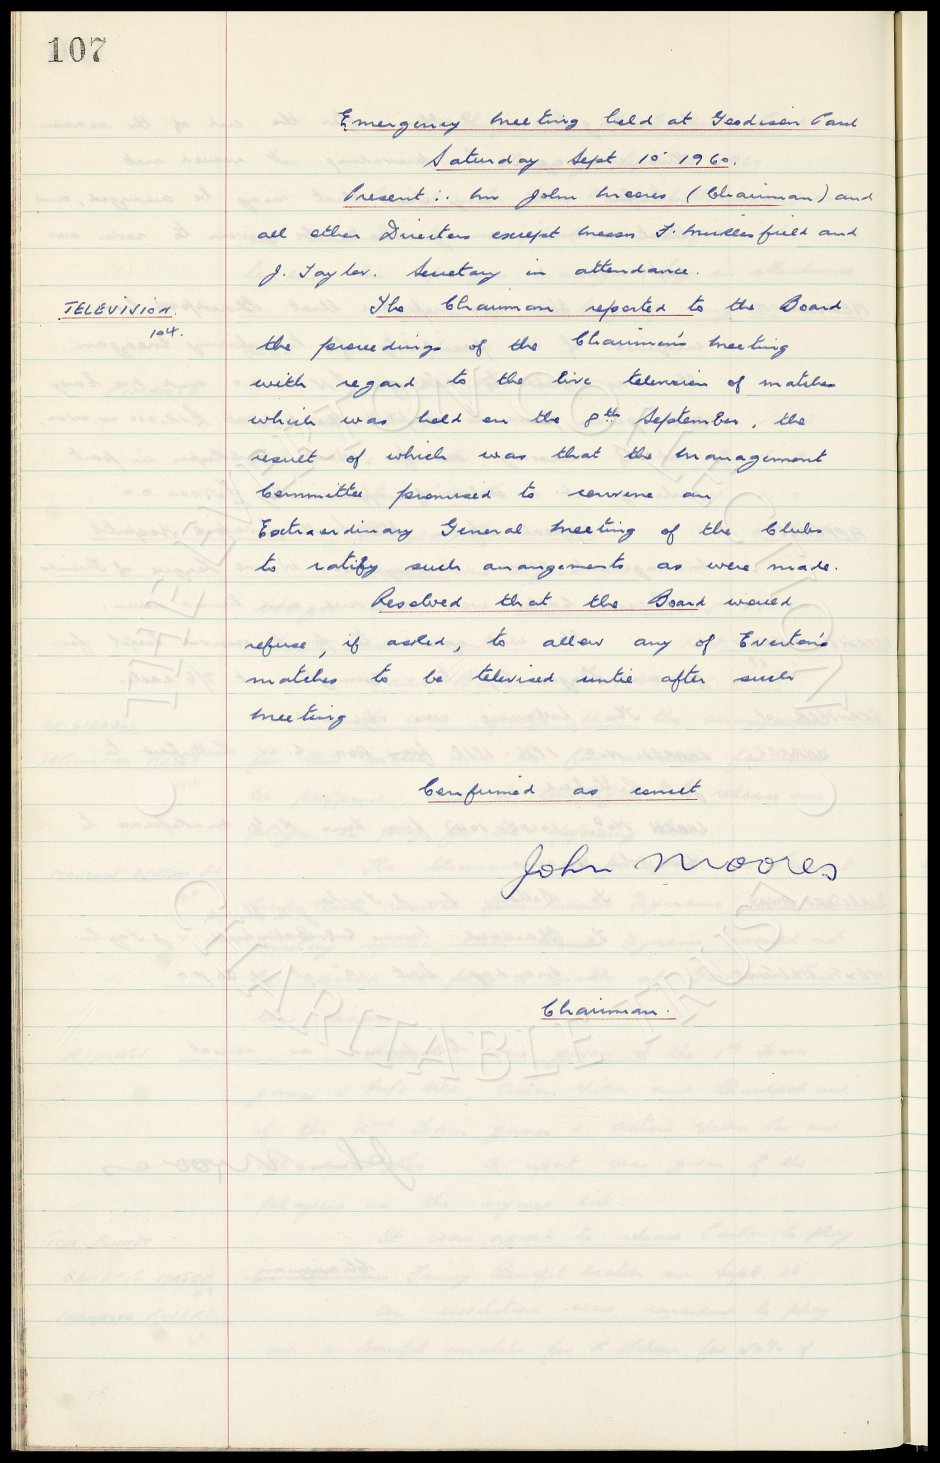 107
Emergency Meeting held at Goodison Park
Saturday Sept 10 1960.
Present:- Mr John Moores (Chairman) and
all other Directors except Messrs F. Micklesfield and
J. Taylor. Secretary in attendance.
TELEVISION.
104.
The Chairman reported to the Board
the proceedings of the Chairman's Meeting
with regard to the live television of matches
which was held on the 8th September, the
result of which was that the Management
Committee promised to convene an
Extraordinary General Meeting of the Clubs
to ratify such arrangements as were made.
Resolved that the Board would
refuse, if asked, to allow any of Everton's
matches to be televised until after such
Meeting
Confirmed as correct
John Moores
Chairman.
EVERTON COLLECTION
CHARITABLE TRUST